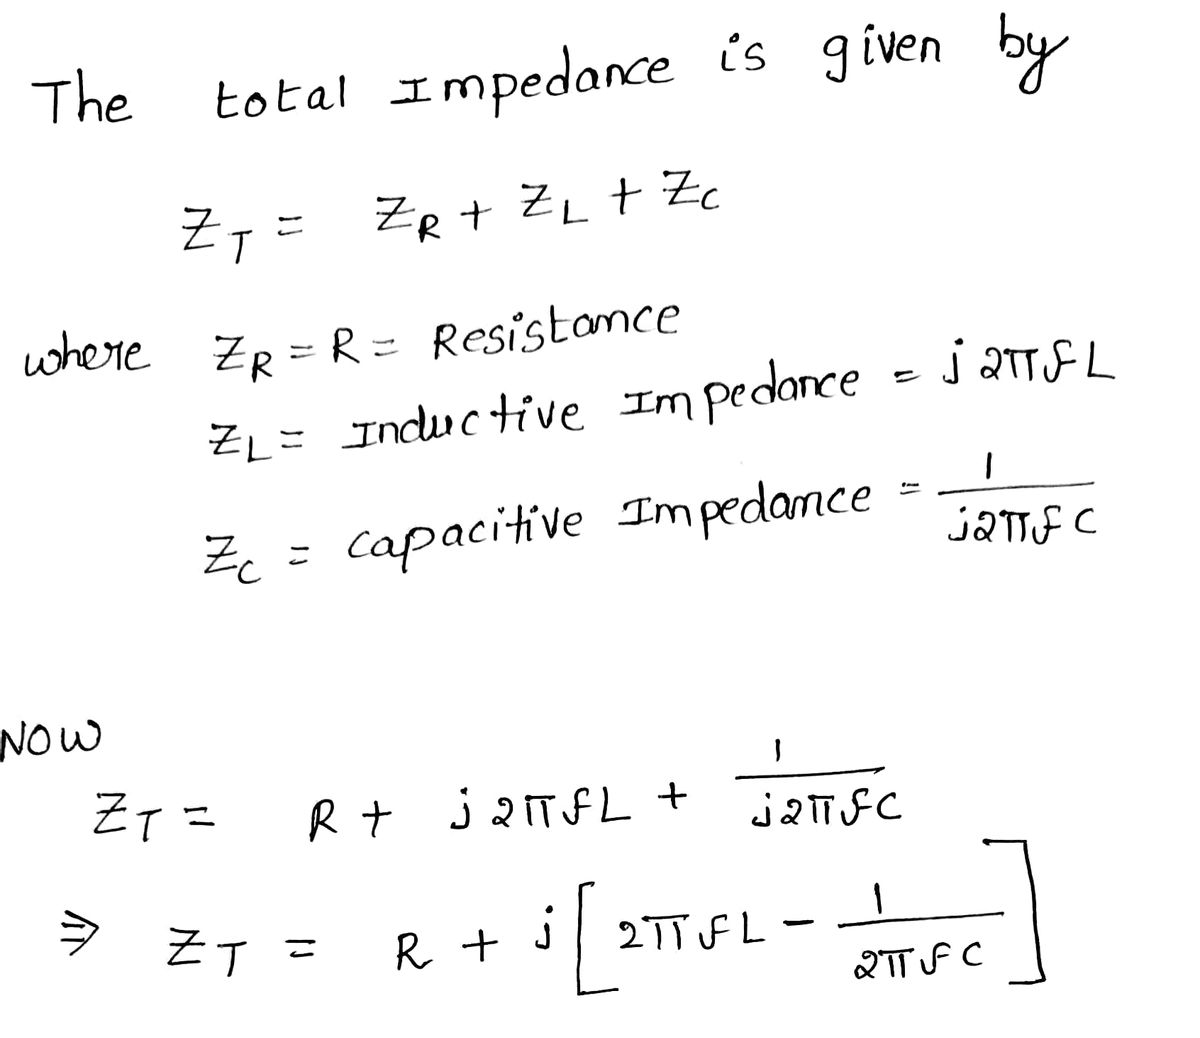 The total Impedance is given by
Z_T = Z_R + Z_L + Z_C
where Z_R = R = Resistance
Z_L = Inductive Impedance = j 2πfL
Z_C = capacitive Impedance = 1/(j2πfC)
NOW
Z_T = R + j 2πfL + 1/(j2πfC)
⇒ Z_T = R + j[2πfL - 1/(2πfC)]